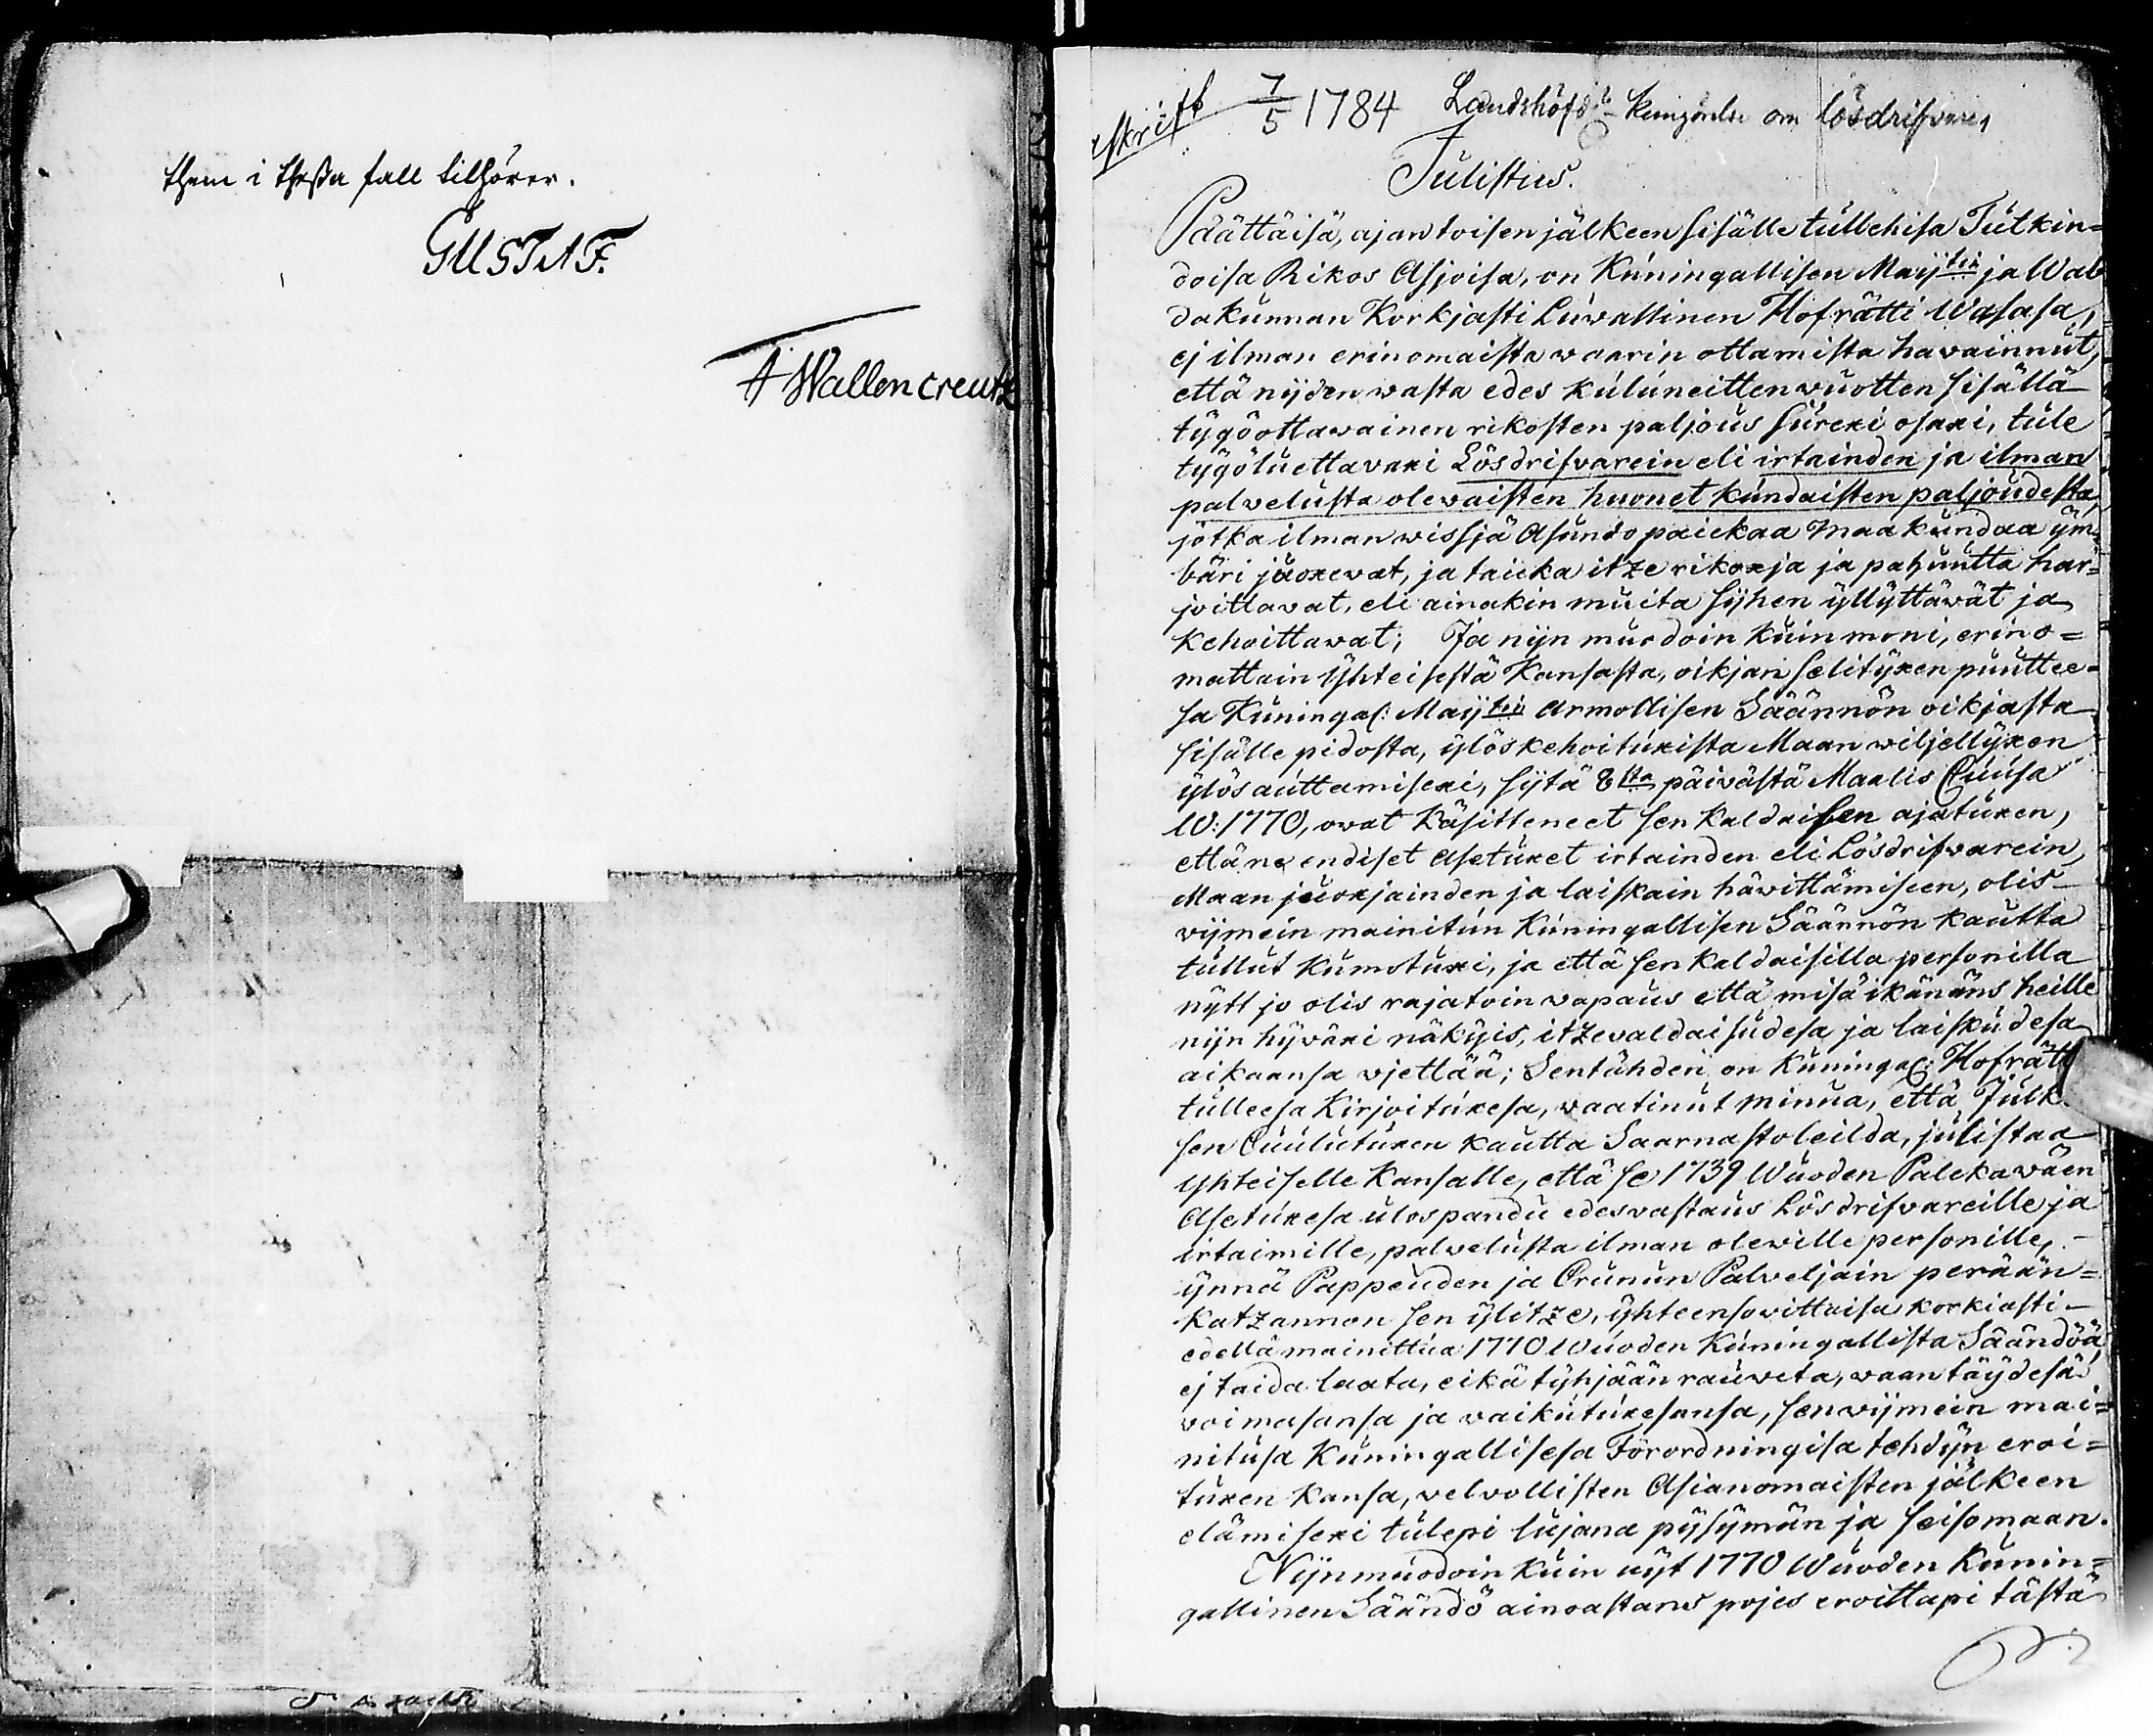 them i theßa fall tilhörer.
GUSTAF.
A Wallencreutz
afskrift 7/5 1784 Landshöfd:s kungörelse om lösdrifvare
Julistus.
Päättäisä, ajan toisen jälkeen sisälle tullehisa Tutkin=
doisa Rikos Asjoisa, on Kuningallisen Maij:tin ja Wal
dakunnan Korkjasti Luwallinen Hofrätti Wasasa,
ej ilman erinomaista waarin ottamista havainnut,
että nijden wasta edes kuluneitten wuotten sisällä
tygöottawainen rikosten paljous suurexi osaxi, tule
tygöluettavaxi Lösdrifvarein eli irtainden ja ilman
palvelusta olewaisten huonet kundaisten paljoudesta,
jotka ilman wissjä Asundo paickaa maakundaa ym=
bäri juoxevat, ja taicka itze rikoxja ja pahuutta har=
joittavat, eli ainakin muita sijhen yllyttävät ja
kehoittavat; Ja nijn muodoin kuin moni, erino=
mattain Yhteisestä Kansasta, oikjan selityxen puuttee=
sa Kuningal: Maij:tin Armollisen Säännön oikjasta
sisälle pidosta, ylöskehoituxista Maan wiljellyxen
ylösauttamisexi, sijtä 8:sta päivästä Maalis Cuusa
W: 1770, ovat Käsitteneet sen kaldaisen ajatuxen,
että ne endiset Asetuxet irtainden eli Lösdrifvarein,
Maan juoxjainden ja laiskain hävittämiseen, olis
vijmein mainitun Kuningallisen Säännön kautta
tullut Kumotuxi, ja että sen kaldaisilla personilla
nytt jo olis rajatoin vapaus että misä ikänäns heille
nijn hyväxi näkyis, itzevaldaisudesa ja laiskudesa
aikaansa vjettää; Sentähden on Kuningal: Hofrätt
tulleesa Kirjoituxesa, vaatinut minua, että Julk
sen Cuulutuxen kautta Saarnastoleilda, julistaa
Yhteiselle Kansalle, että se 1739 Wuoden Palckawäen
Asetuxesa ulospandu edesvastaus Lösdrifvareille ja
irtaimille, palvelusta ilman olewille personille,
ynnä Pappeuden ja Crunun Palveljain perään=
katzannon sen ylitze, yhteensovittaisa korkiasti
edellämainittua 1770 Wuoden Kuningallista Säändöä,
ej taida laata, eikä tyhjään rauveta, waan täydesä
voimasansa ja vaikutuxesansa, sen vijmein mai=
nitusa Kuningallisesa Förordningisa tehdyn eroi=
tuxen kansa, velvollisten Asianomaisten jälkeen
elämisexi tulepi lujana pysymän ja seisomaan.
Nijnmuodoin kuin nyt 1770 Wuoden Kunin=
gallinen Säändö ainoastans pojes eroittapi tästä